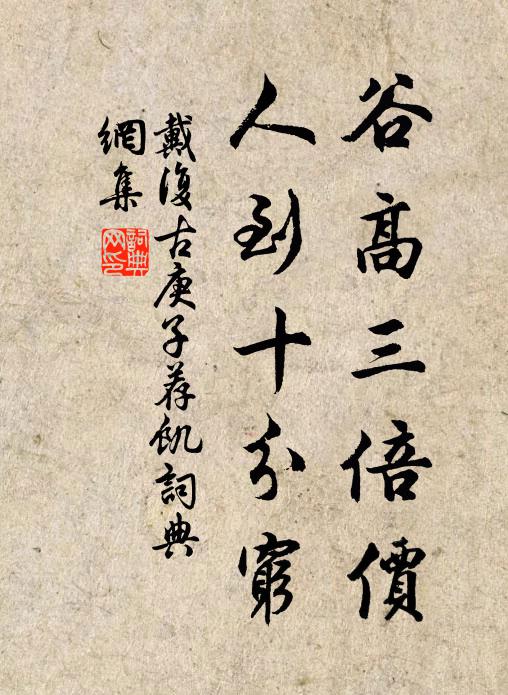 谷高三倍價
人到十分窮
戴復古庚子荐飢詞典
網集
詞典网印